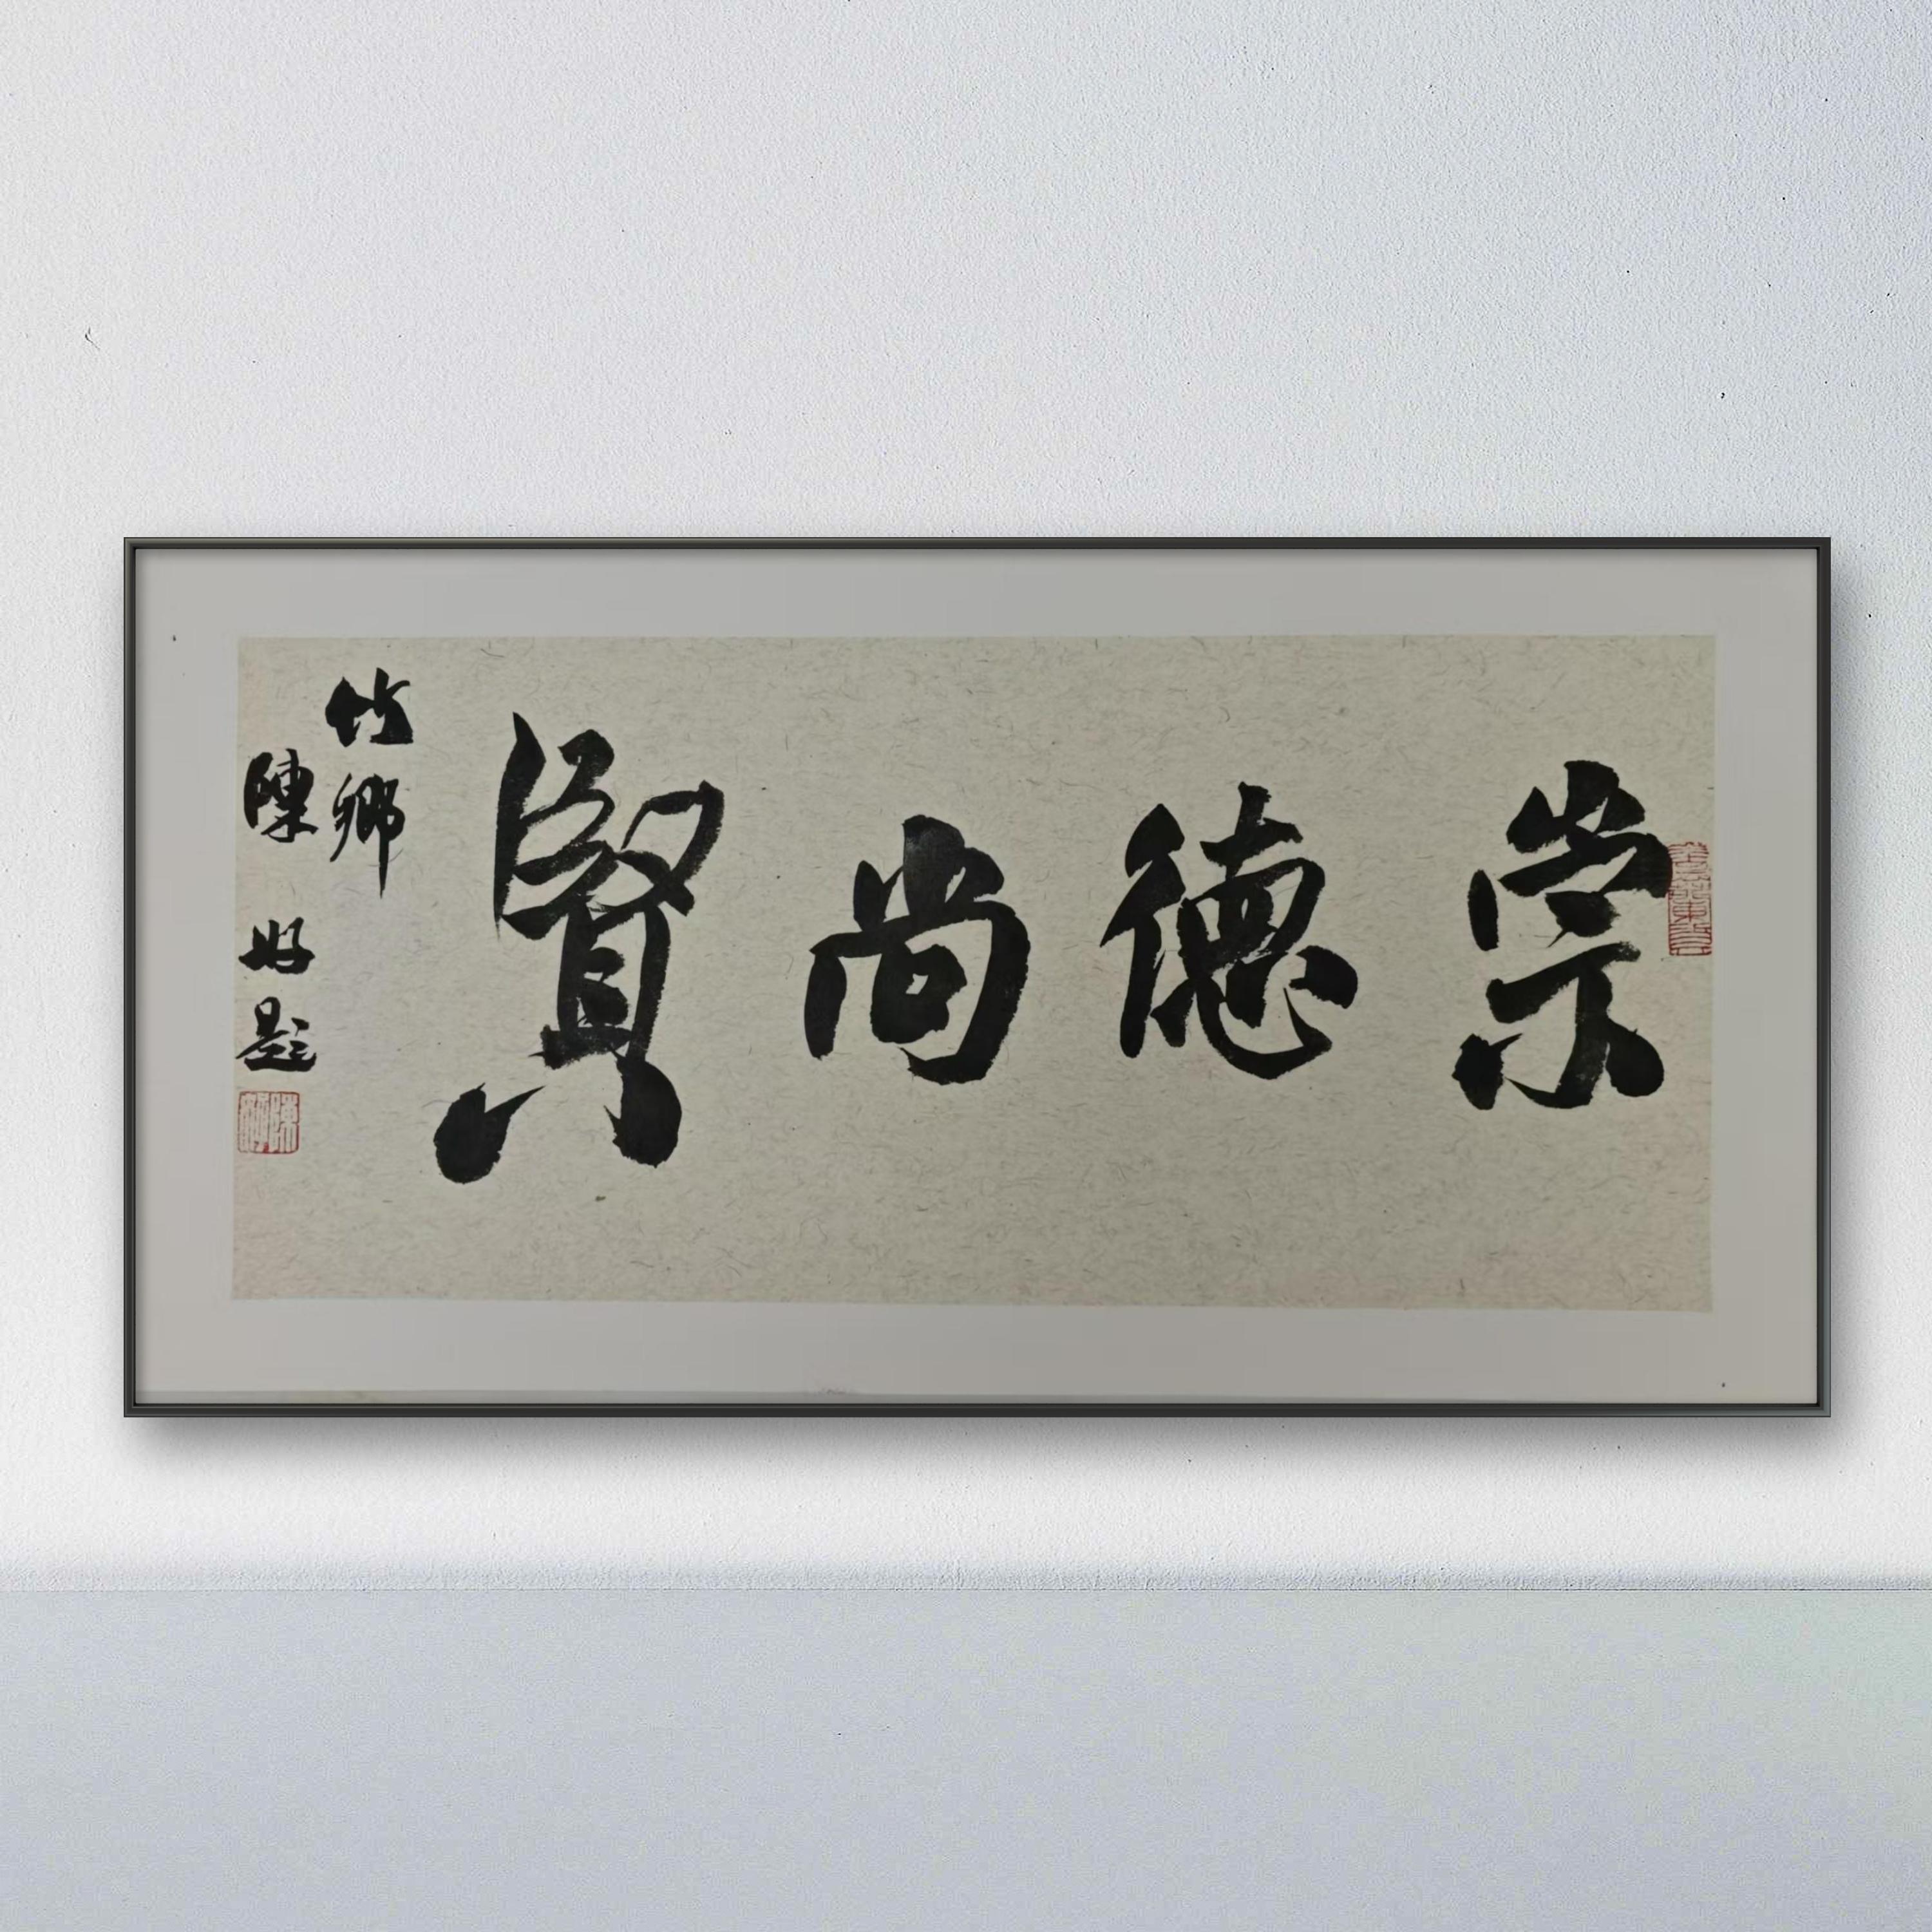 崇德尚賢
竹鄉
陳 好題
陳